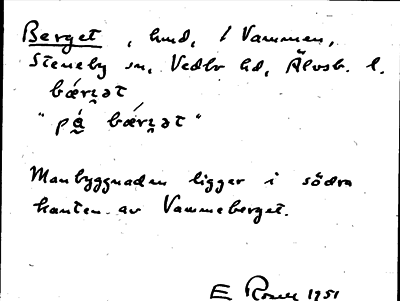 Berget, hmd, i Vammen,
Steneby sn, Vedbo hd, Älvsb. l.
bǽrı̯ət
"på̱ bǽrı̯ət"
Manbyggnaden ligger i södra
kanten av Vammeberget.
E 1951